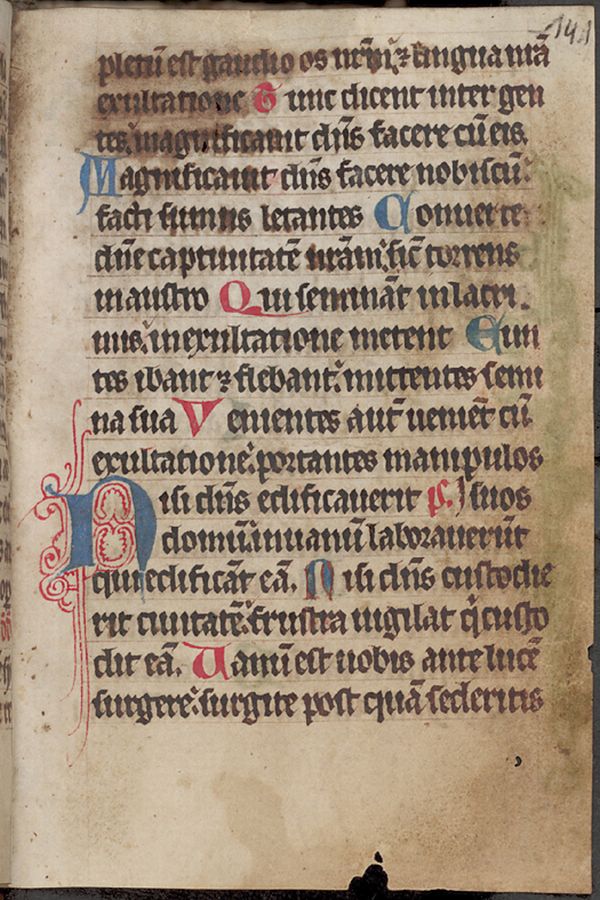 141
pletū est gaudio os nr̄m ⁊ lingua nr̄a
exultatione Tunc dicent inter gen
tes. magnificauit dn̄s facere cū eis.
Magnificauit dn̄s facere nobiscū.
facti sumus letantes Conuerte
dn̄e captiuitatē nr̄am. sic̄ torrens
in austro Qui semināt in lacri
mis. in exultatione metent Eun
tes ibant ⁊ flebant. mittentes semi
na sua Venientes aut̄ ueniēt cū
exultatione. portantes manipulos
Nisi dn̄s edificauerit ps. ) suos
domū. in uanū laborauerūt
qui edificāt eā. Nisi dn̄s custodie
rit ciuitatē. frustra uigilat q̇ custo
dit eā. Vanū est uobis ante lucē
surgere. surgite post quā sederitis